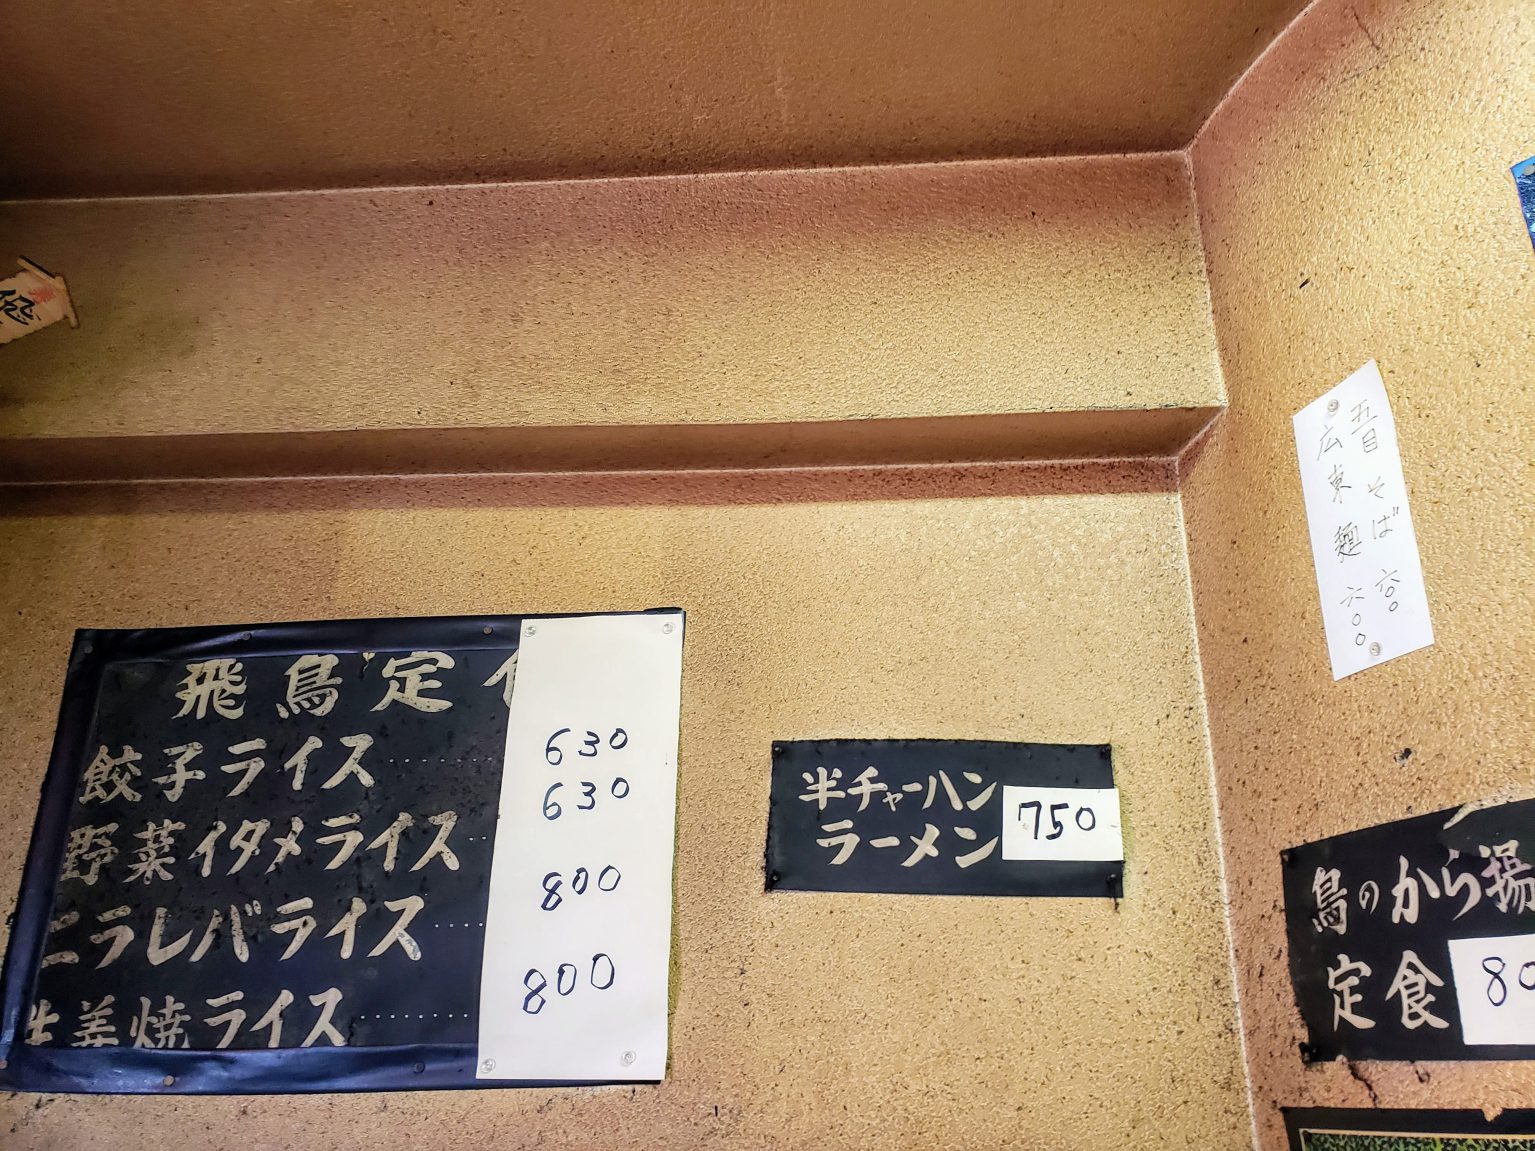 飛鳥定
餃子ライス
630
野菜イタメライス
630
ニラレバライス
800
生姜焼ライス
800
半チャーハン
ラーメン
750
五目そば 六〇〇
広東麺 六〇〇
鳥のから揚
定食
80